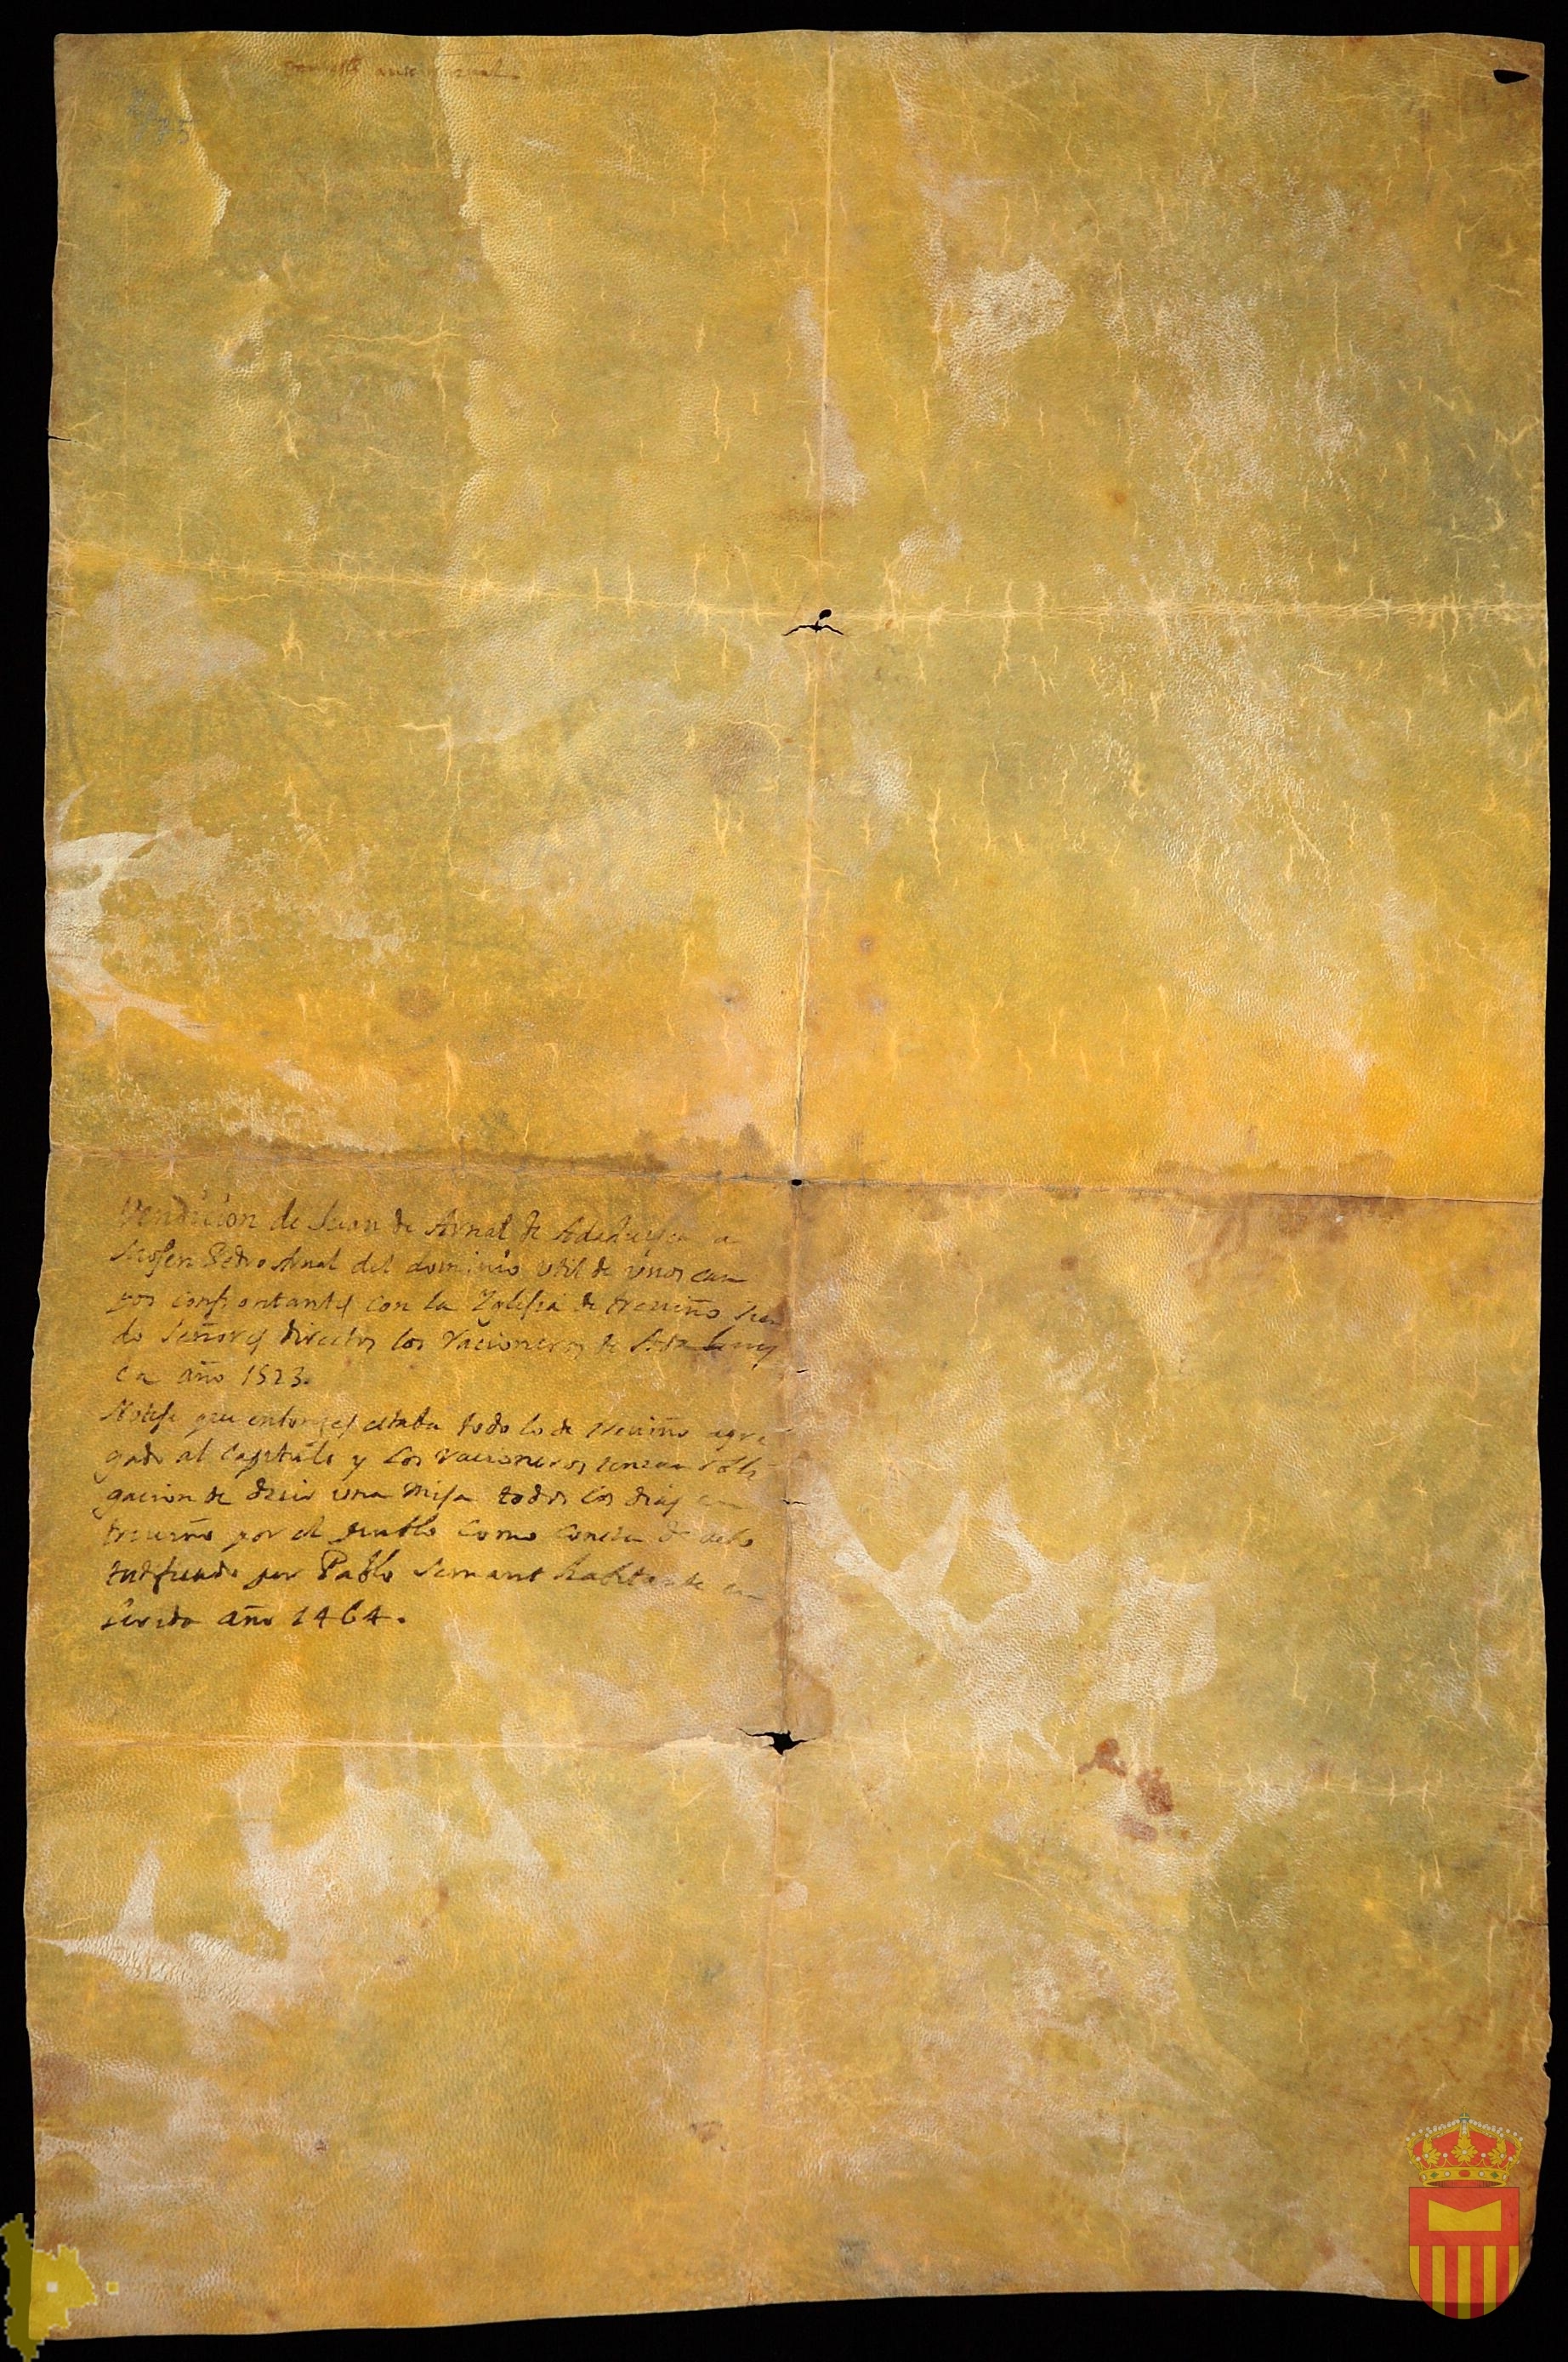 Vendicion de Juan de Arnal de Adahuesca a
Mosen Pedro Arnal del dominio vtil de vnos cam
pos confrontantes con la Iglesia de treuiño sien
do Señores directos los racioneros de Adahuesc
ca año 1523.
Notese que entonces estaba todo lo de treuiño agre
gado al Capitulo y los racioneros tenian obli
gacion de decir vna Misa todos los dias en
treuiño por el pueblo como consta de acto
testificado por Pablo habitante en
año 1464.